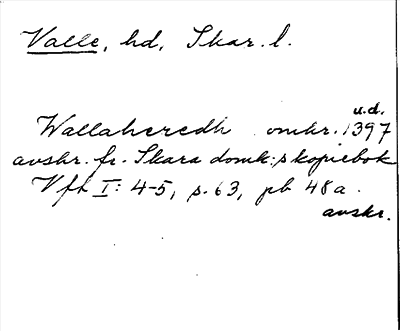 Valle, hd, Skar. l.
u.d.
Wallaheredh omkr. 1397
avskr. fr. Skara domk:s kopiebok
Vft I: 4-5, s. 63, pb 48a.
avskr.